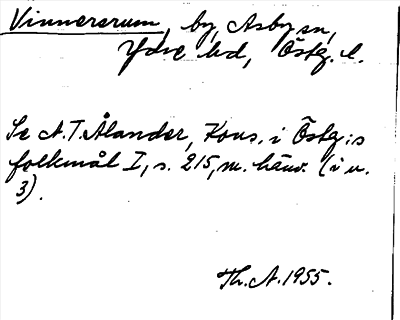 Vinnersrum, by, Asby sn,
Ydre hd, Östg. l.
Se A. T. Ålander, Kons. i Östg:s
folkmål I, s. 215, m. hänv. (i n.
3).
Th. A. 1955.